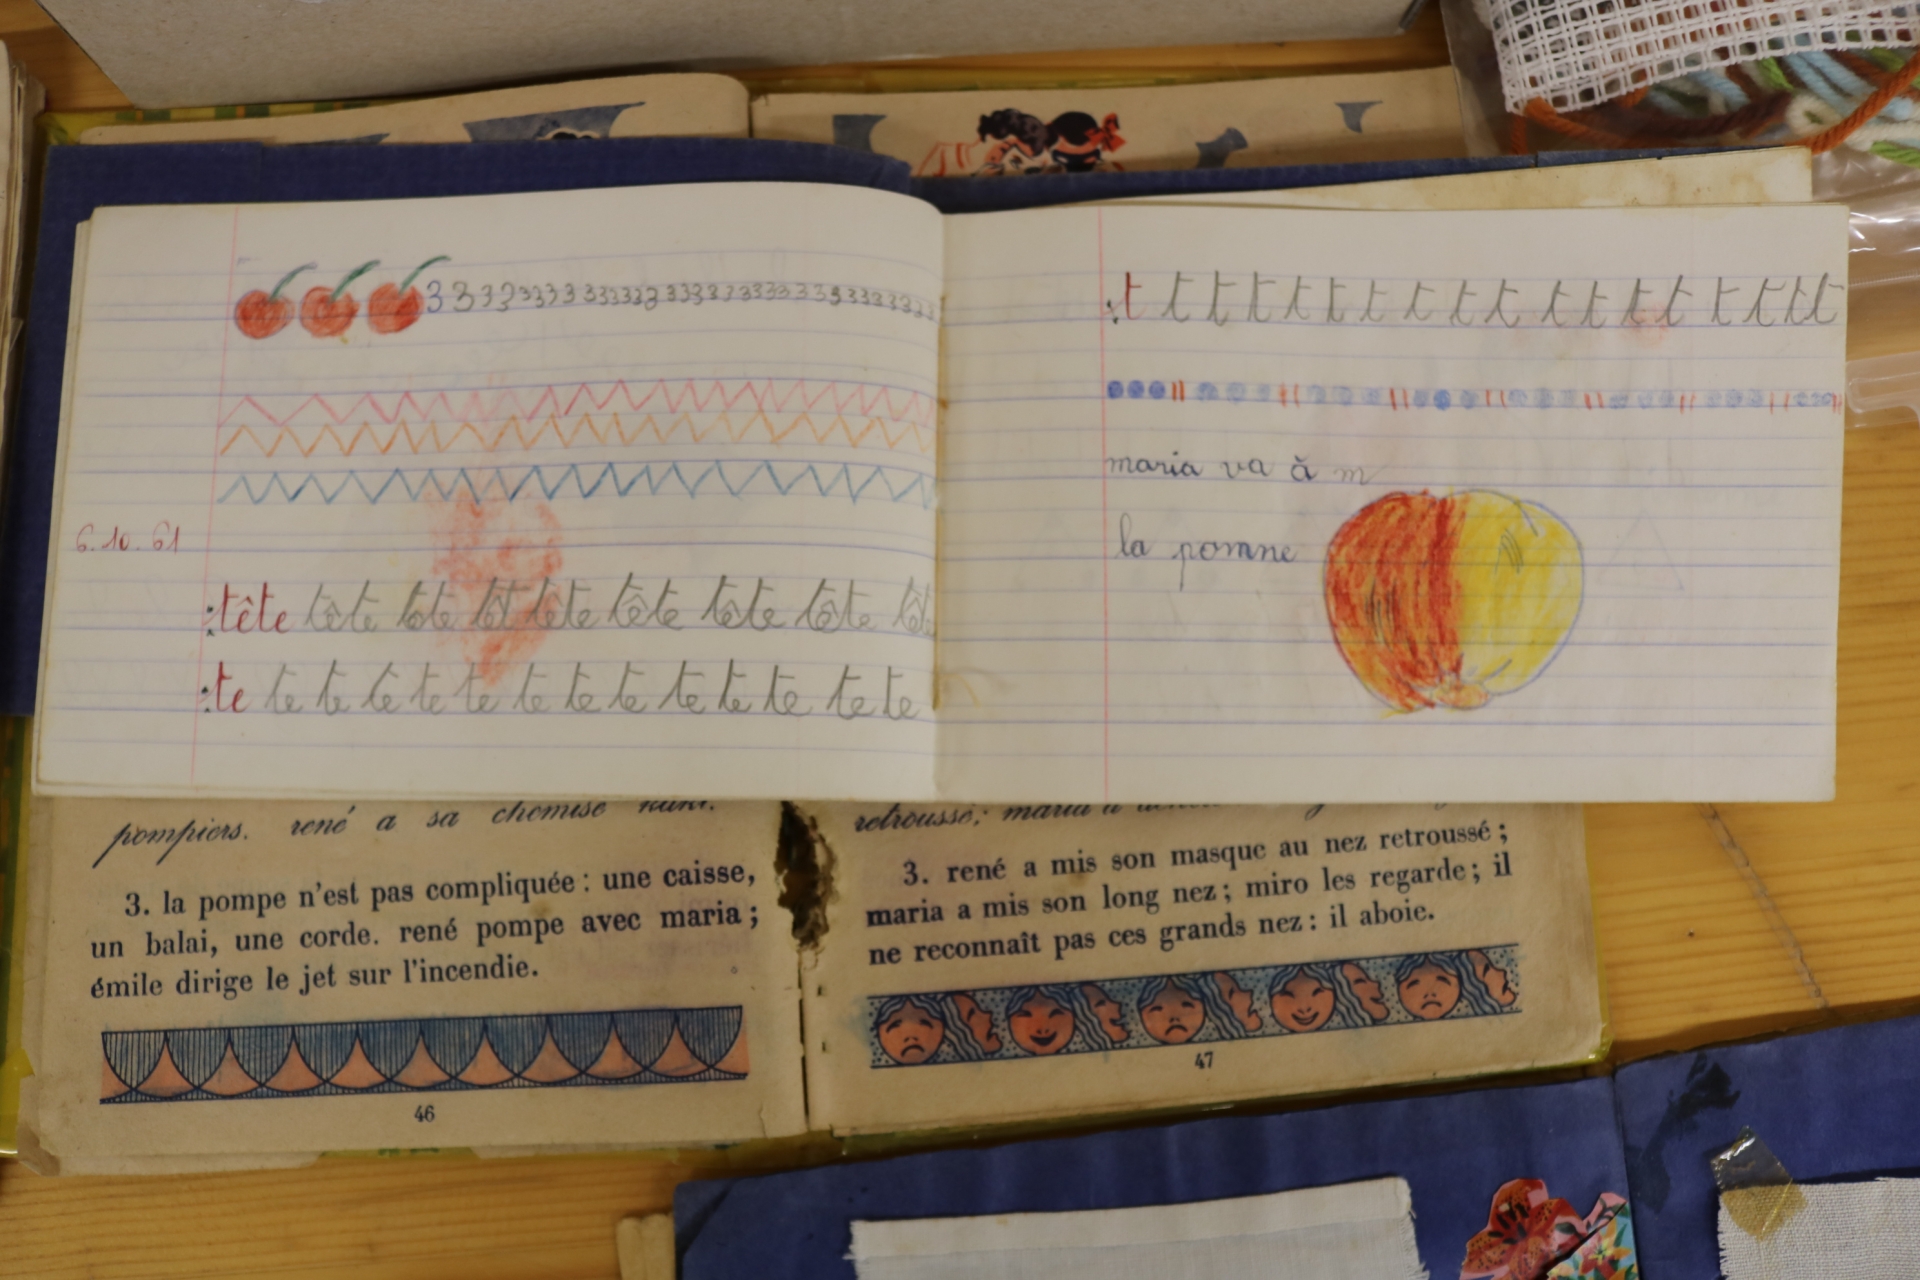 3 3 3 3 3 3 3 3 3 3 3 3 3 3 3 3 3 3 3 3 3 3 3 3 3 3 3 3 3 3
6.10.61
tête tête tête têt tête tête tête tête têt
te te te te te te te te te te te te te te
t t t t t t t t t t t t t t t t t t
maria va à m
la pomne
pompiers. rené a sa chemise kaki.
3. la pompe n'est pas compliquée : une caisse,
un balai, une corde. rené pompe avec maria ;
émile dirige le jet sur l'incendie.
46
retroussé ; maria a
3. rené a mis son masque au nez retroussé ;
maria a mis son long nez ; miro les regarde ; il
ne reconnaît pas ces grands nez : il aboie.
47